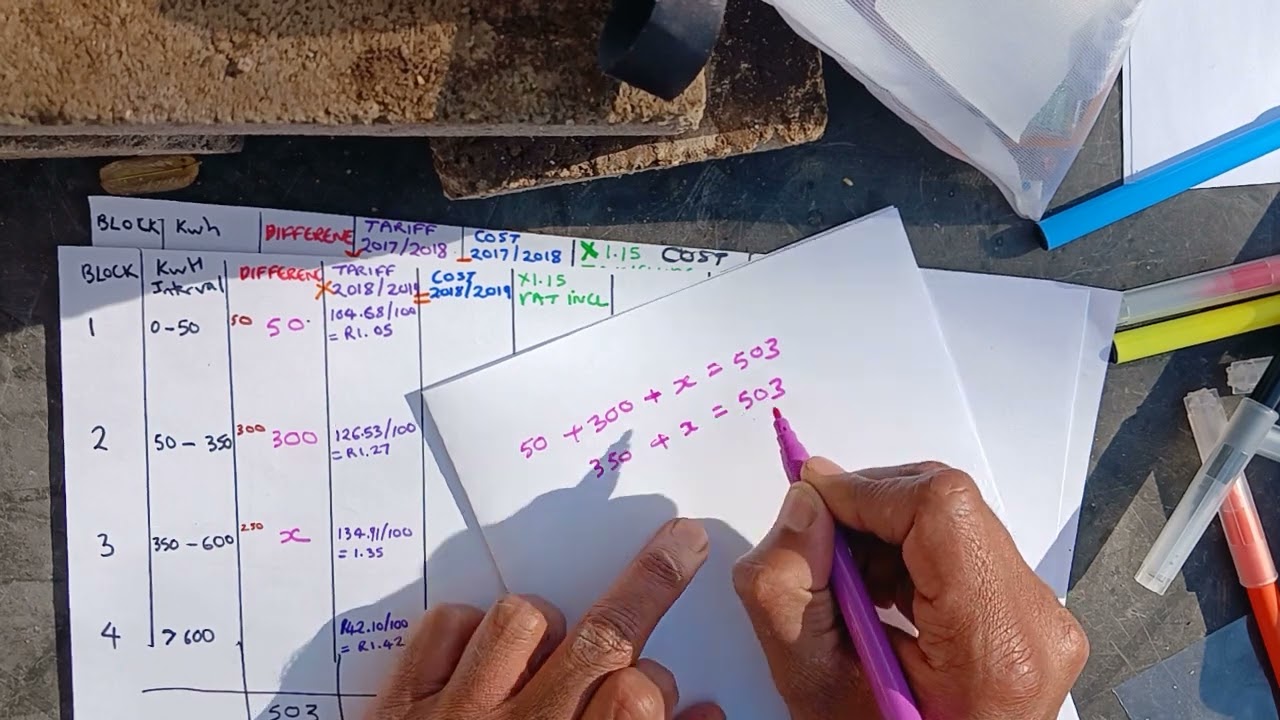 BLOCK Kwh DIFFERENE TARIFF 2017/2018 COST 2017/2018 X 1.15 COST
BLOCK KwH Interval DIFFERENC TARIFF X 2018/2019 = COST 2018/2019 X1.15 VAT INCL
1 0-50 50 50. 104.68/100 = R1.05
2 50-350 300 300 126.53/100 = R1.27
3 350-600 250 x 134.91/100 = 1.35
4 >600 R42.10/100 = R1.42
503
50 + 300 + x = 503
350 + x = 503